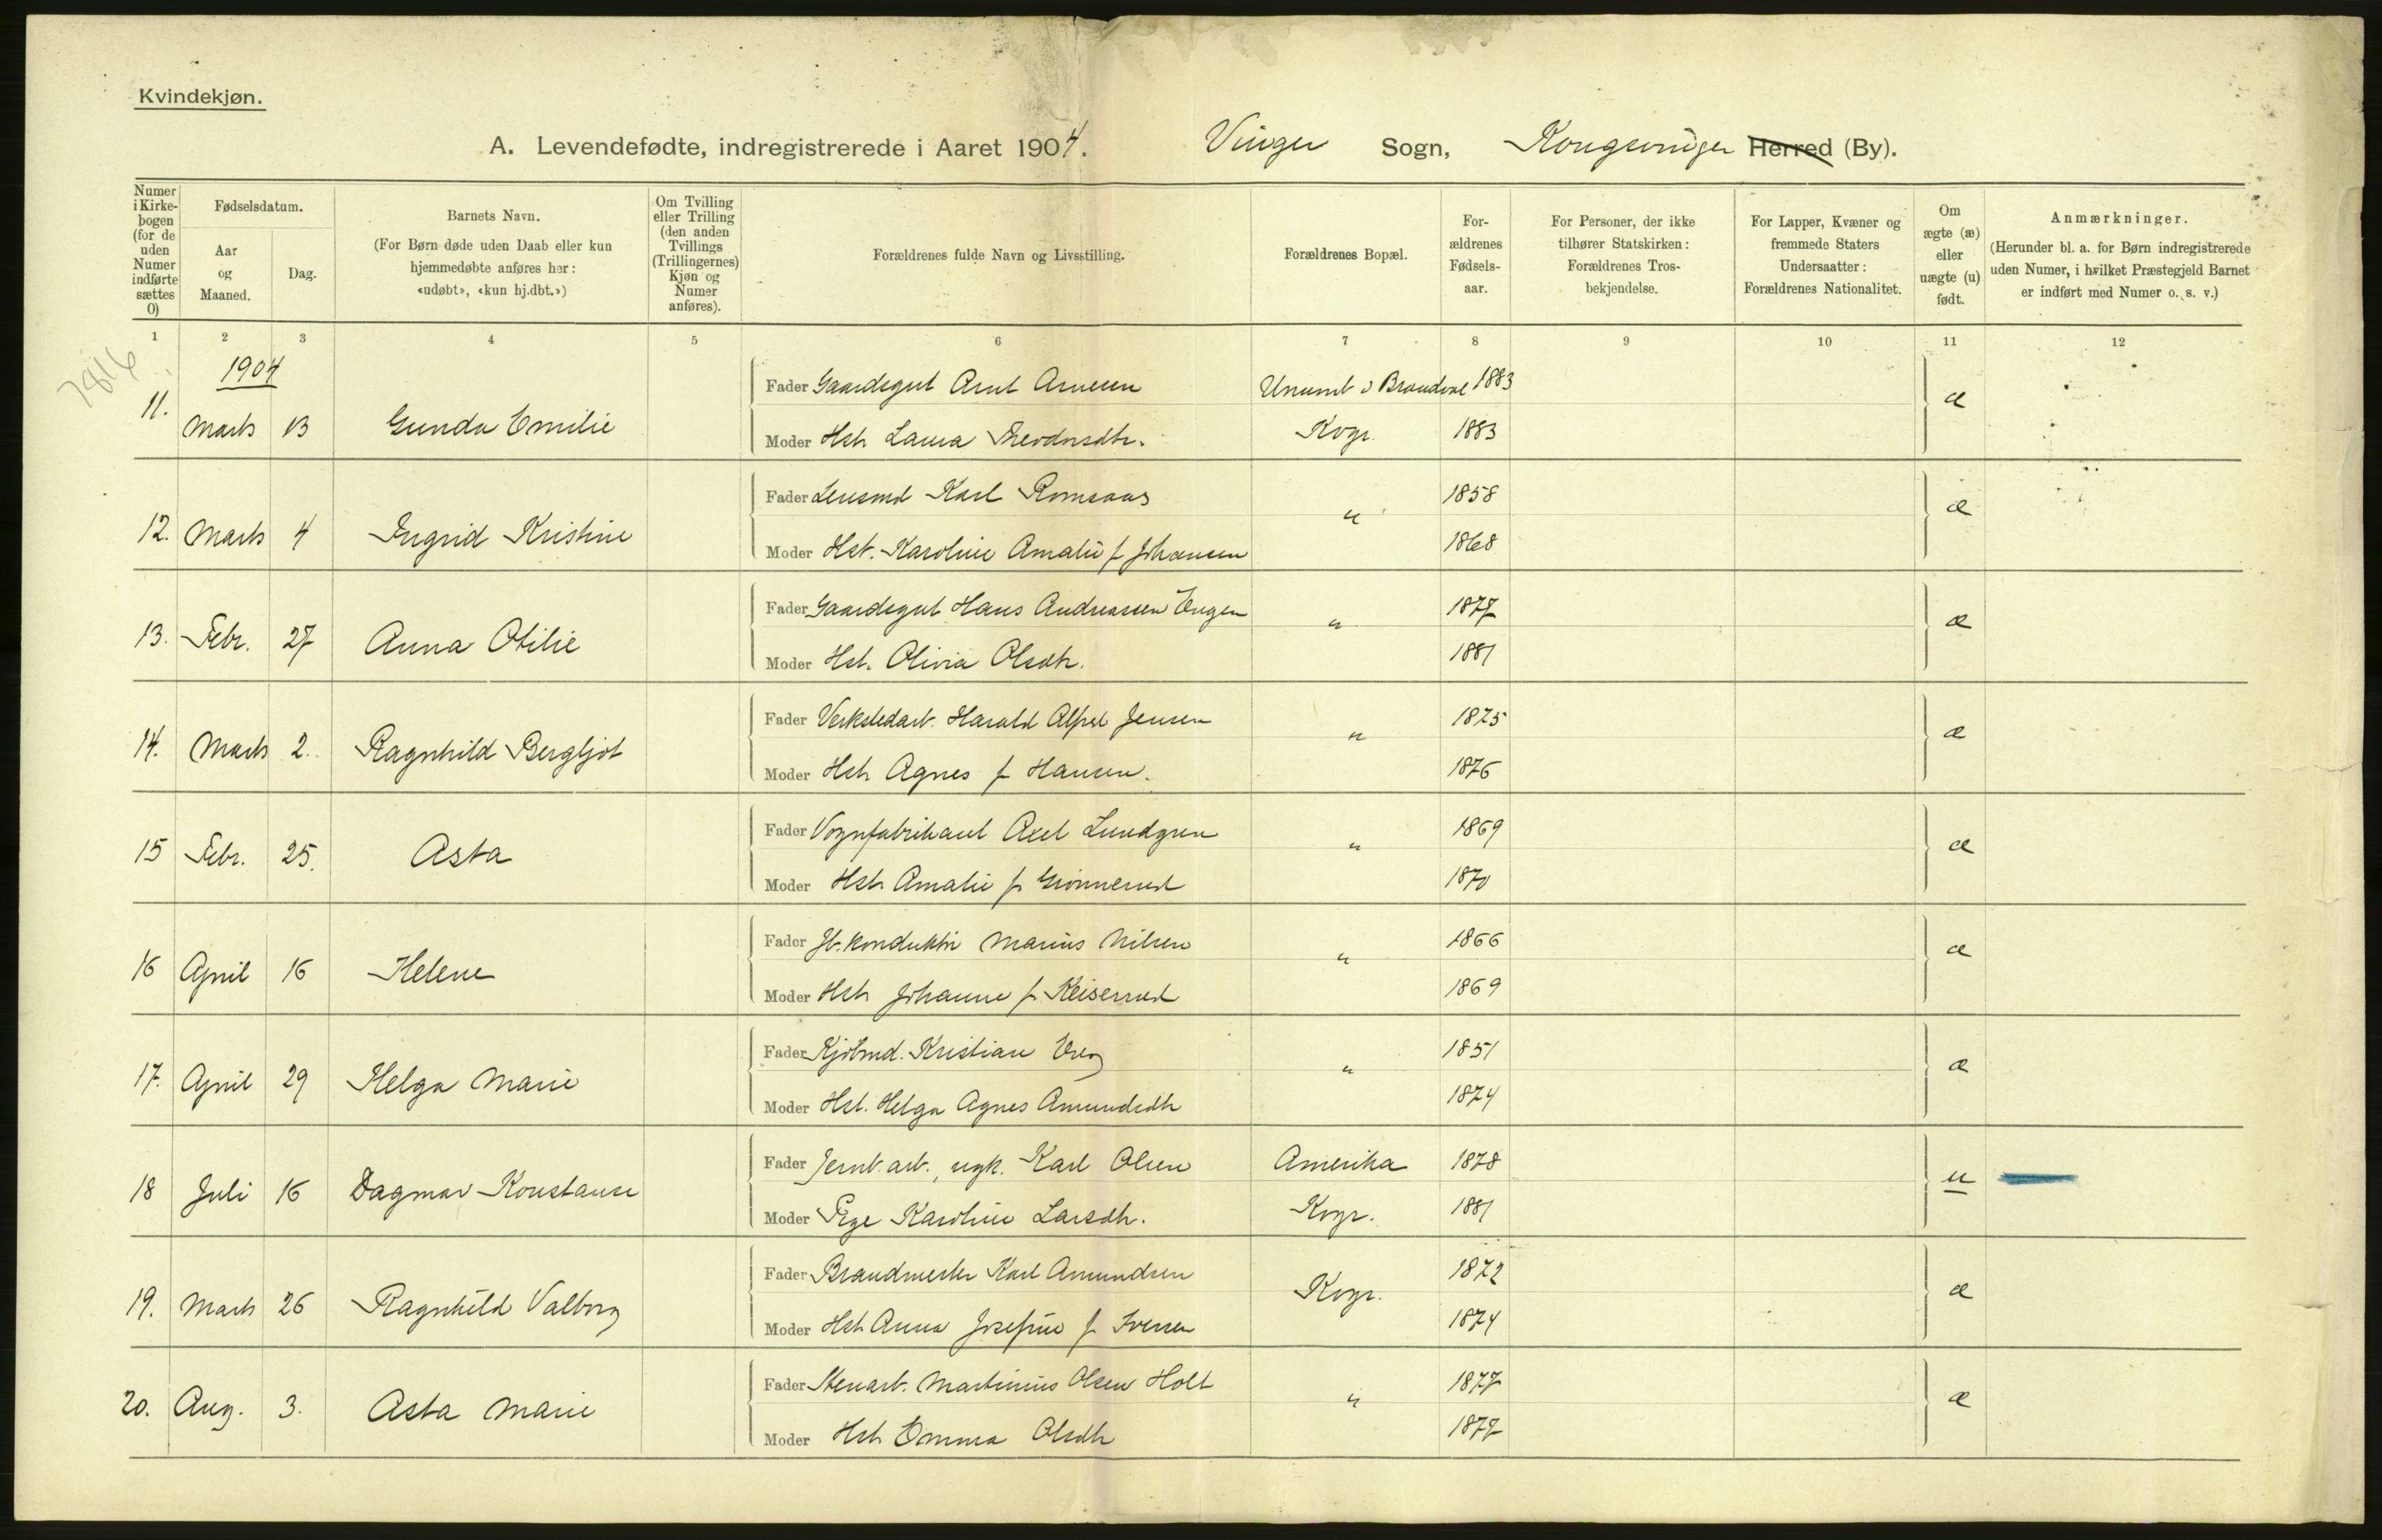 Kvindekjøn.
A. Levendefødte, indregistrerede i Aaret 1904. Vinger Sogn, Kongsvinger Herred (By).
Numer i Kirkebogen (for de uden Numer indførte sættes 0)
Fødselsdatum.
Aar og Maaned.
Dag.
Barnets Navn.
(For Børn døde uden Daab eller kun hjemmedøbte anføres her: «udøbt», «kun hj.dbt.»)
Om Tvilling eller Trilling (den anden Tvillings (Trillingernes) Kjøn og Numer anføres).
Forældrenes fulde Navn og Livsstilling.
Forældrenes Bopæl.
Forældrenes Fødselsaar.
For Personer, der ikke tilhører Statskirken: Forældrenes Trosbekjendelse.
For Lapper, Kvæner og fremmede Staters Undersaatter: Forældrenes Nationalitet.
Om ægte (æ) eller uægte (u) født.
Anmærkninger.
(Herunder bl. a. for Børn indregistrerede uden Numer, i hvilket Præstegjeld Barnet er indført med Numer o. s. v.)
1 2 3 4 5 6 7 8 9 10 11 12
1904
Fader Gaardsgut Arnt Arnesen Brandval 1883
11. Marts 13 Gunda Emilie æ
Moder Hstr. Laura Kvgr. 1883
Fader Lensmd Karl Romsaas 1858
12. Marts 4 Ingrid Kristine " æ
Moder Hst. Karoline Amalie f Johansen 1868
Fader Gaardsgut Hans Andreassen Engen 1877
13. Febr. 27 Anna Otilie " æ
Moder Hst. Olivia Olsdtr. 1881
Fader Verkstedarb. Harald Alfred Jensen 1875
14. Marts 2. Ragnhild Bergljot " æ
Moder Hstr Agnes f Hansen. 1876
Fader Vognfabrikant Axel Lundgren 1869
15 Febr. 25. Asta " æ
Moder Hstr Amalie f. Grønnerud 1870
Fader Jb. konduktør Marius Nilsen 1866
16 April 16 Helene " æ
Moder Hstr Johanne f. Keiserud 1869
Fader Kjøbmd. Kristian 1851
17. April 29 Helga Marie " æ
Moder Hst. Helga Agnes Amundsdtr 1874
Fader Jernb. arb., ugk. Karl Olsen Amerika 1878
18 Juli 16 Dagmar Konstanse u
Moder Pige Karoline Larsdtr. Kvgr. 1881
Fader Brandmester Karl Amundsen 1872
19. Marts 26 Ragnhild Valborg Kvgr. æ
Moder Hstr Anna Josefine f Iversen 1874
Fader Stenarb. Martinius Olsen Holt 1877
20. Aug. 3. Asta Marie " æ
Moder Hstr Emma Olsdtr 1877